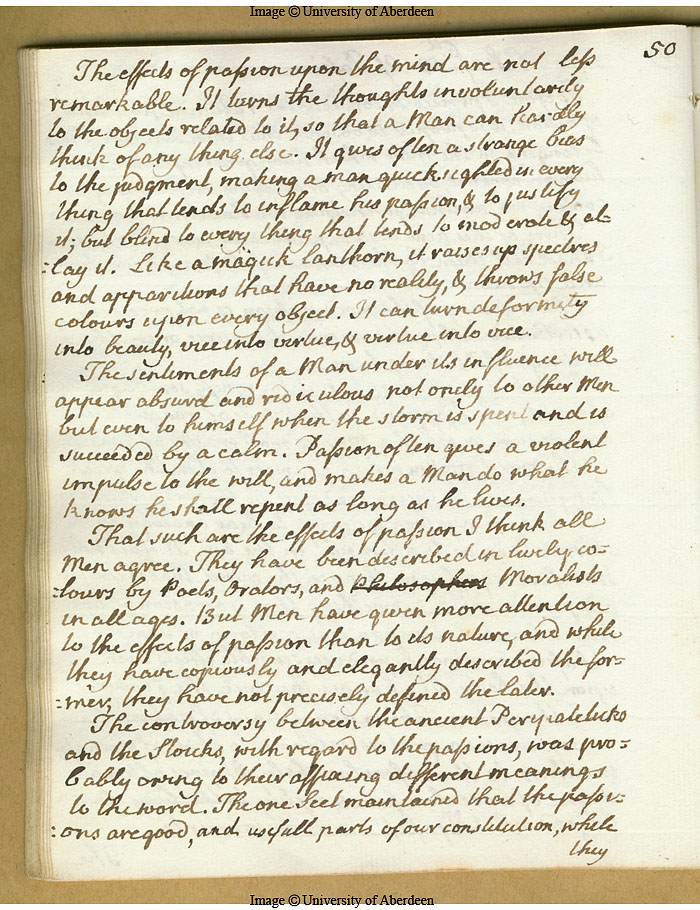 Image © University of Aberdeen
50
The effects of passion upon the mind are not less
remarkable. It turns the thoughts involuntarily
to the objects related to it, so that a Man can hardly
think of any thing else. It gives often a strange bias
to the judgment, making a man quick sighted in every
thing that tends to inflame his passion, & to justify
it; but blind to every thing that tends to moderate & al-
:lay it. Like a magick lanthorn, it raises up spectres
and apparitions that have no reality, & throws false
colours upon every object. It can turn deformity
into beauty, vice into virtue, & virtue into vice.
The sentiments of a Man under its influence will
appear absurd and ridiculous not only to other Men
but even to himself when the storm is spent and is
succeeded by a calm. Passion often gives a violent
impulse to the will, and makes a Man do what he
knows he shall repent as long as he lives.
That such are the effects of passion I think all
Men agree. They have been described in lively co-
:lours by Poets, Orators, and Philosophers Moralists
in all ages. But Men have given more attention
to the effects of passion than to its nature, and while
they have copiously and elegantly described the for-
:mer, they have not precisely defined the later.
The controversy between the ancient Perypateticks
and the Stoicks, with regard to the passions, was pro=
bably owing to their affixing different meanings
to the word. The one Sect maintained that the passi-
:ons are good, and usefull parts of our constitution, while
they
Image © University of Aberdeen